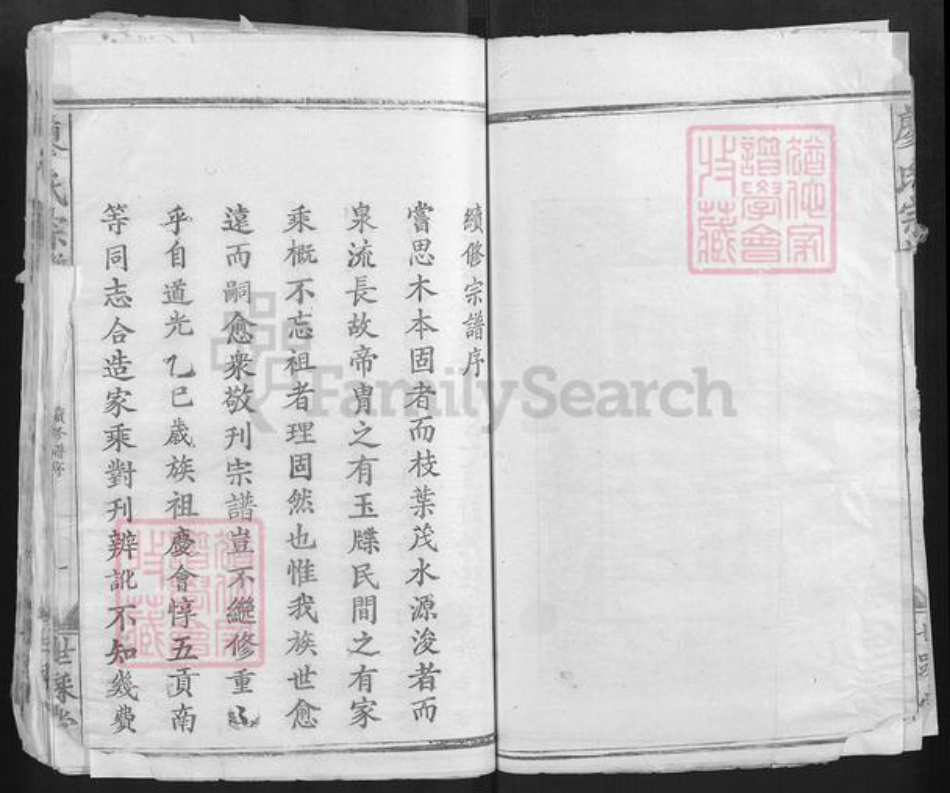 廖氏宗
續修宗譜序
嘗思木本固者而枝葉茂水源浚者而
泉流長故帝胄之有玉牒民間之有家
乘概不忘祖者理固然也惟我族世愈
遠而嗣愈衆敬刊宗譜豈不繼修重
乎自道光乙巳歲族祖慶會惇五貢南
等同志合造家乘對刊辨訛不知幾費
氏宗
一
世采
FamilySearch